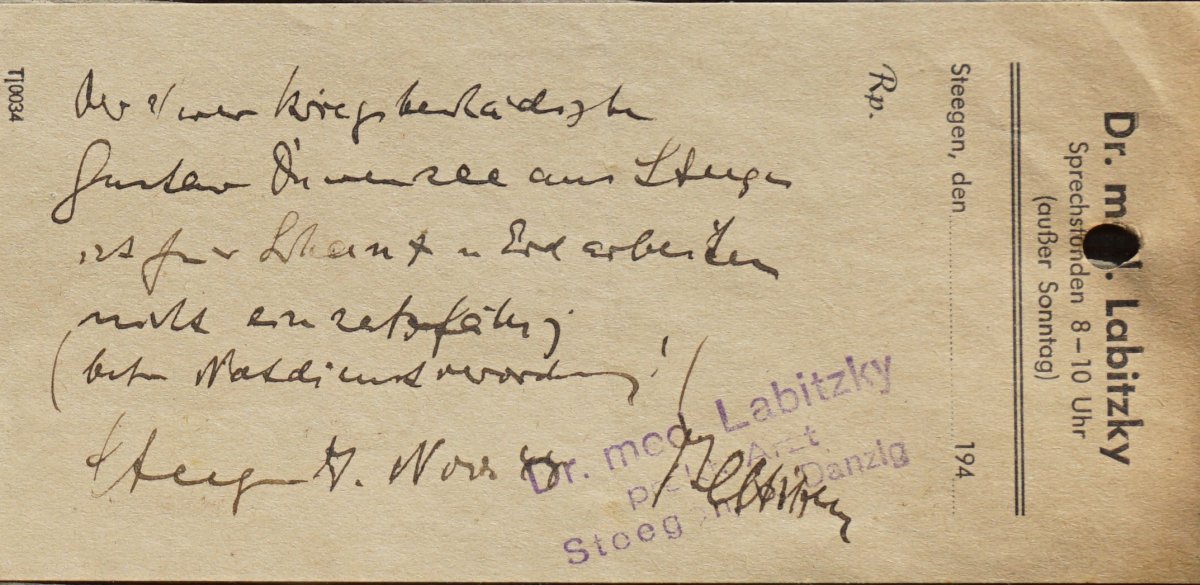 Dr. med. Labitzky
Sprechstunden 8–10 Uhr
(außer Sonntag)
Steegen, den 194
Rp.
Der Kriegsbeschädigte
Gustav aus Steegen
ist für Schanz u Erdarbeiten
nicht einsatzfähig
(betr. Notdienstverordnung!)
Steegen Nov. 44
Dr. Labitzky
Dr. med. Labitzky
prakt. Arzt
Steegen Danzig
T|0034